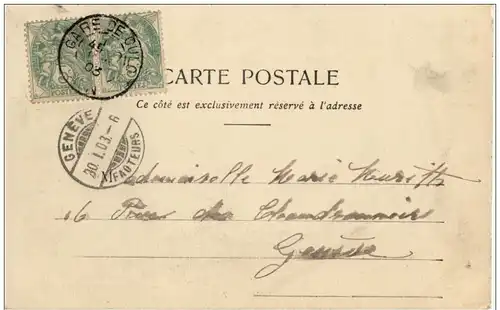 GARE DE CULOZ
03
CARTE POSTALE
Ce côté est exclusivement réservé à l'adresse
GENÈVE
30.I.03.-6
FACTEURS
Mademoiselle Marie
16 Rue des Chaudronniers
Genève